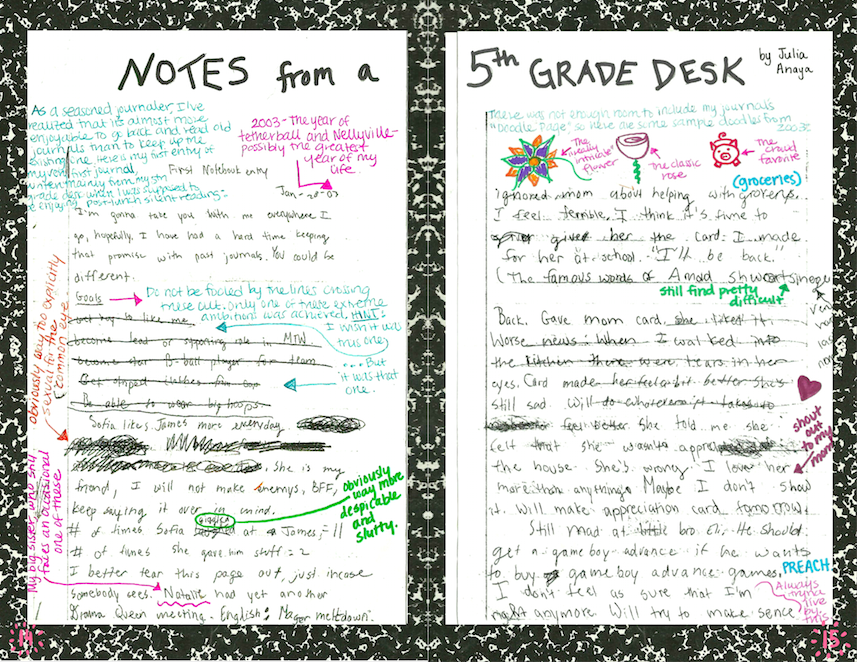 NOTES from a
As a seasoned journaler, I've
realized that it's almost more
enjoyable to go back and read old
journals than to keep up the
Here is my first entry of
my first journal,
written mainly from my 5th
grade desk when I was supposed to
be enjoying post-lunch silent reading-
2003 - The year of
tetherball and Nellyville-
possibly the greatest
year of my
life.
First Notebook entry
Jan - 28 - 03
I'm gonna take you with me everywhere I
go, hopefully. I have had a hard time keeping
that promise with past journals. You could be
different.
Goals
Do not be fooled by the lines crossing
these out. Only one of these extreme
ambitions was achieved. HINT:
I wish it was
this one
Get boy to like me
become lead or supporting role in MTW
become star B-ball player for team
....But
it was that
one.
Get shaped
Be able to wear big hoops
obviously way too explicitly
sexual for the
common eye
Sofia likes James more everyday
She is my
friend, I will not make enemys, BFF,
keep saying it over in mind.
giggled
# of times Sofia at James, = 11
# of times she gave him stuff = 2
I better tear this page out, just incase
somebody sees. Natalie had yet another
Drama Queen meeting - English: Mager meltdown.
obviously
way more
despicable
and
slutty.
My big sister, who still,
has an occasional
one of these
14
5th GRADE DESK
by Julia
Anaya
There was not enough room to include my journal's
"Doodle Page," so here are some sample doodles from
2003:
The
"really
intricate"
flower
The classic
rose
The
crowd
favorite
(groceries)
ignored mom about helping with
I feel terrible. I think it's time to
give her the card I made
for her at school. "I'll be back."
(The famous words of Arnold
still find pretty
difficult
Back. Gave mom card, she liked it.
Worse news: When I walked into
the kitchen there were tears in her
eyes. Card made her feel a bit better she's
still sad. Will do whatever it takes to
feel better. She told me she
felt that she wasn't
the house. She's wrong I love her
more than anything. Maybe I don't show
it. Will make appreciation card tomorrow.
shout
out
to my
mom
Still mad at little bro Eli. He should
get a gameboy advance if he wants
to buy gameboy advance games.
PREACH
I don't feel as sure that I'm
right anymore. Will try to make sence
Always
tryna
live
by
this
15